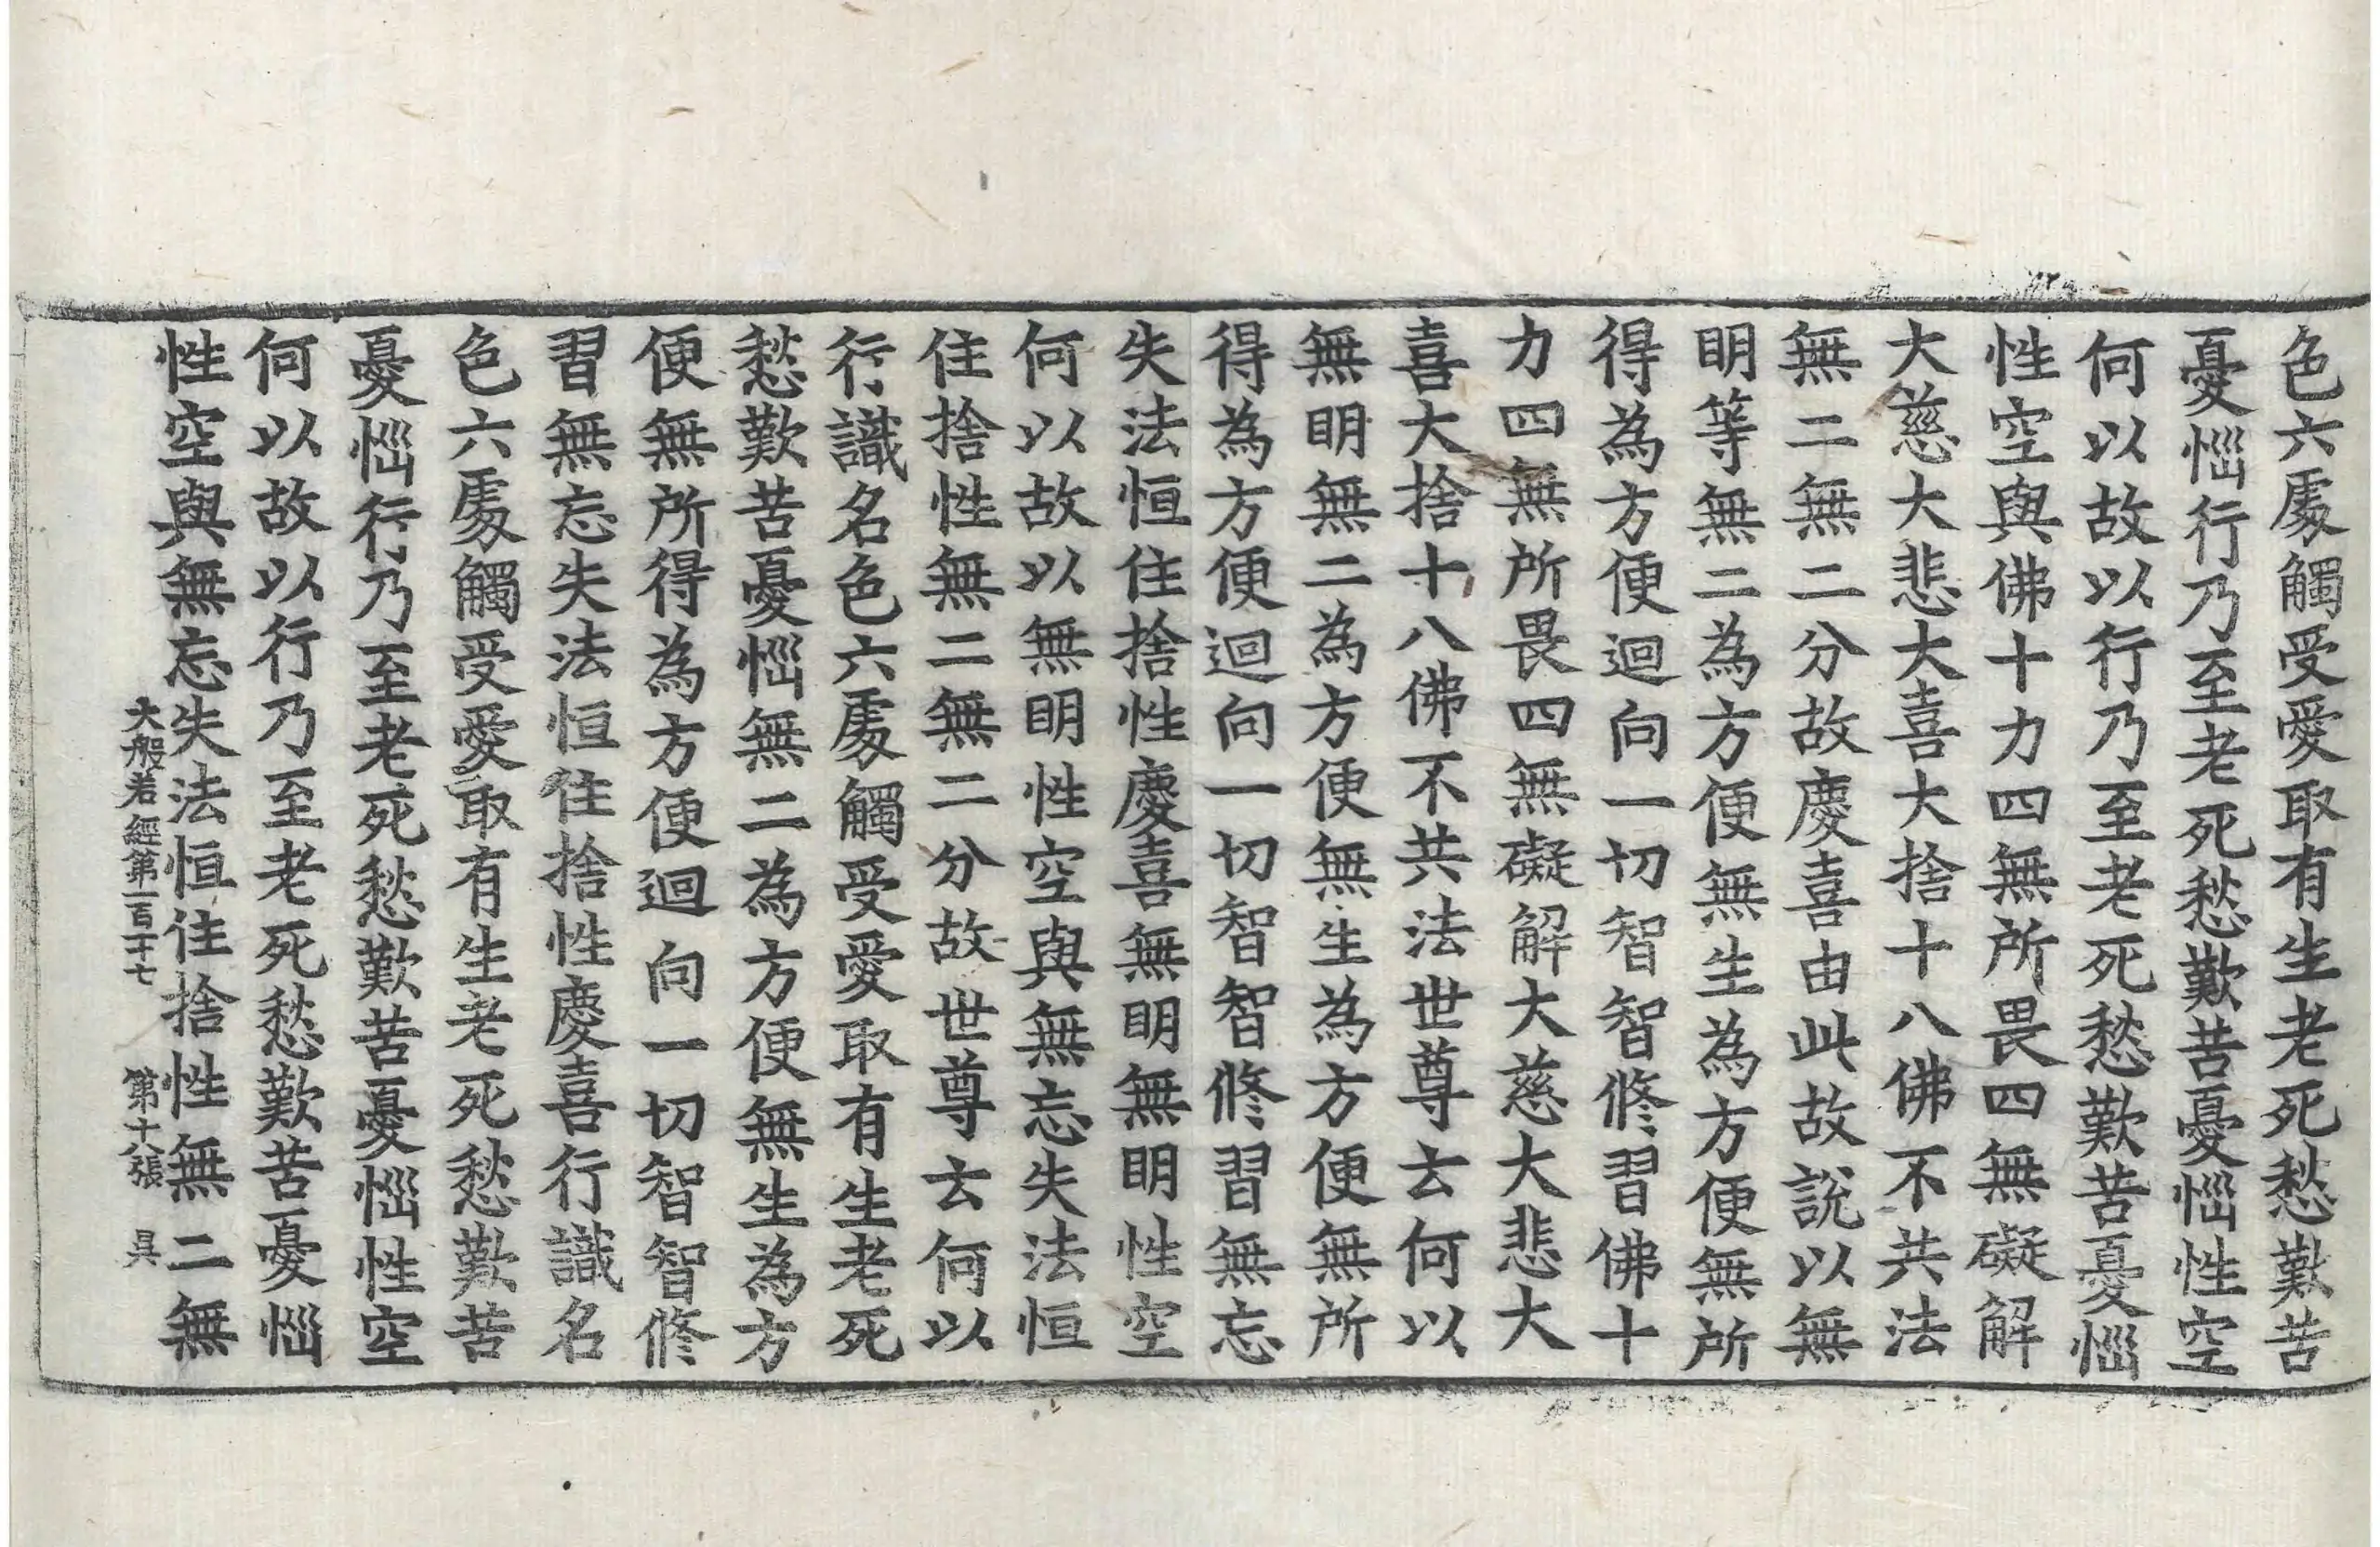 色六處觸受愛取有生老死愁歎苦
憂惱行乃至老死愁歎苦憂惱性空
何以故以行乃至老死愁歎苦憂惱
性空與佛十力四無所畏四無礙解
大慈大悲大喜大捨十八佛不共法
無二無二分故慶喜由此故說以無
明等無二為方便無生為方便無所
得為方便迴向一切智智修習佛十
力四無所畏四無礙解大慈大悲大
喜大捨十八佛不共法世尊云何以
無明無二為方便無生為方便無所
得為方便迴向一切智智修習無忘
失法恒住捨性慶喜無明無明性空
何以故以無明性空與無忘失法恒
住捨性無二無二分故世尊云何以
行識名色六處觸受愛取有生老死
愁歎苦憂惱無二為方便無生為方
便無所得為方便迴向一切智智修
習無忘失法恒住捨性慶喜行識名
色六處觸受愛取有生老死愁歎苦
憂惱行乃至老死愁歎苦憂惱性空
何以故以行乃至老死愁歎苦憂惱
性空與無忘失法恒住捨性無二無
大般若經第一百二十七 第十八張 昃